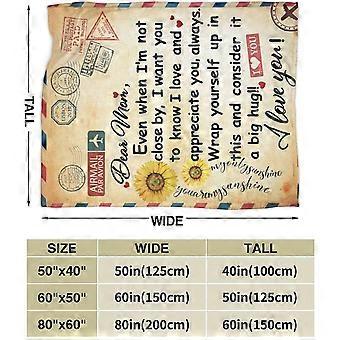 Dear Mom,
Even when I'm not
close by, I want you
to know I love and
appreciate you, always.
Wrap yourself up in
this and consider it
a big hug!!
I love you!
I YOU
AIRMAIL
PAR AVION
my only sunshine
you are my sunshine
TALL
WIDE
SIZE WIDE TALL
50"x40" 50in(125cm) 40in(100cm)
60"x50" 60in(150cm) 50in(125cm)
80"x60" 80in(200cm) 60in(150cm)